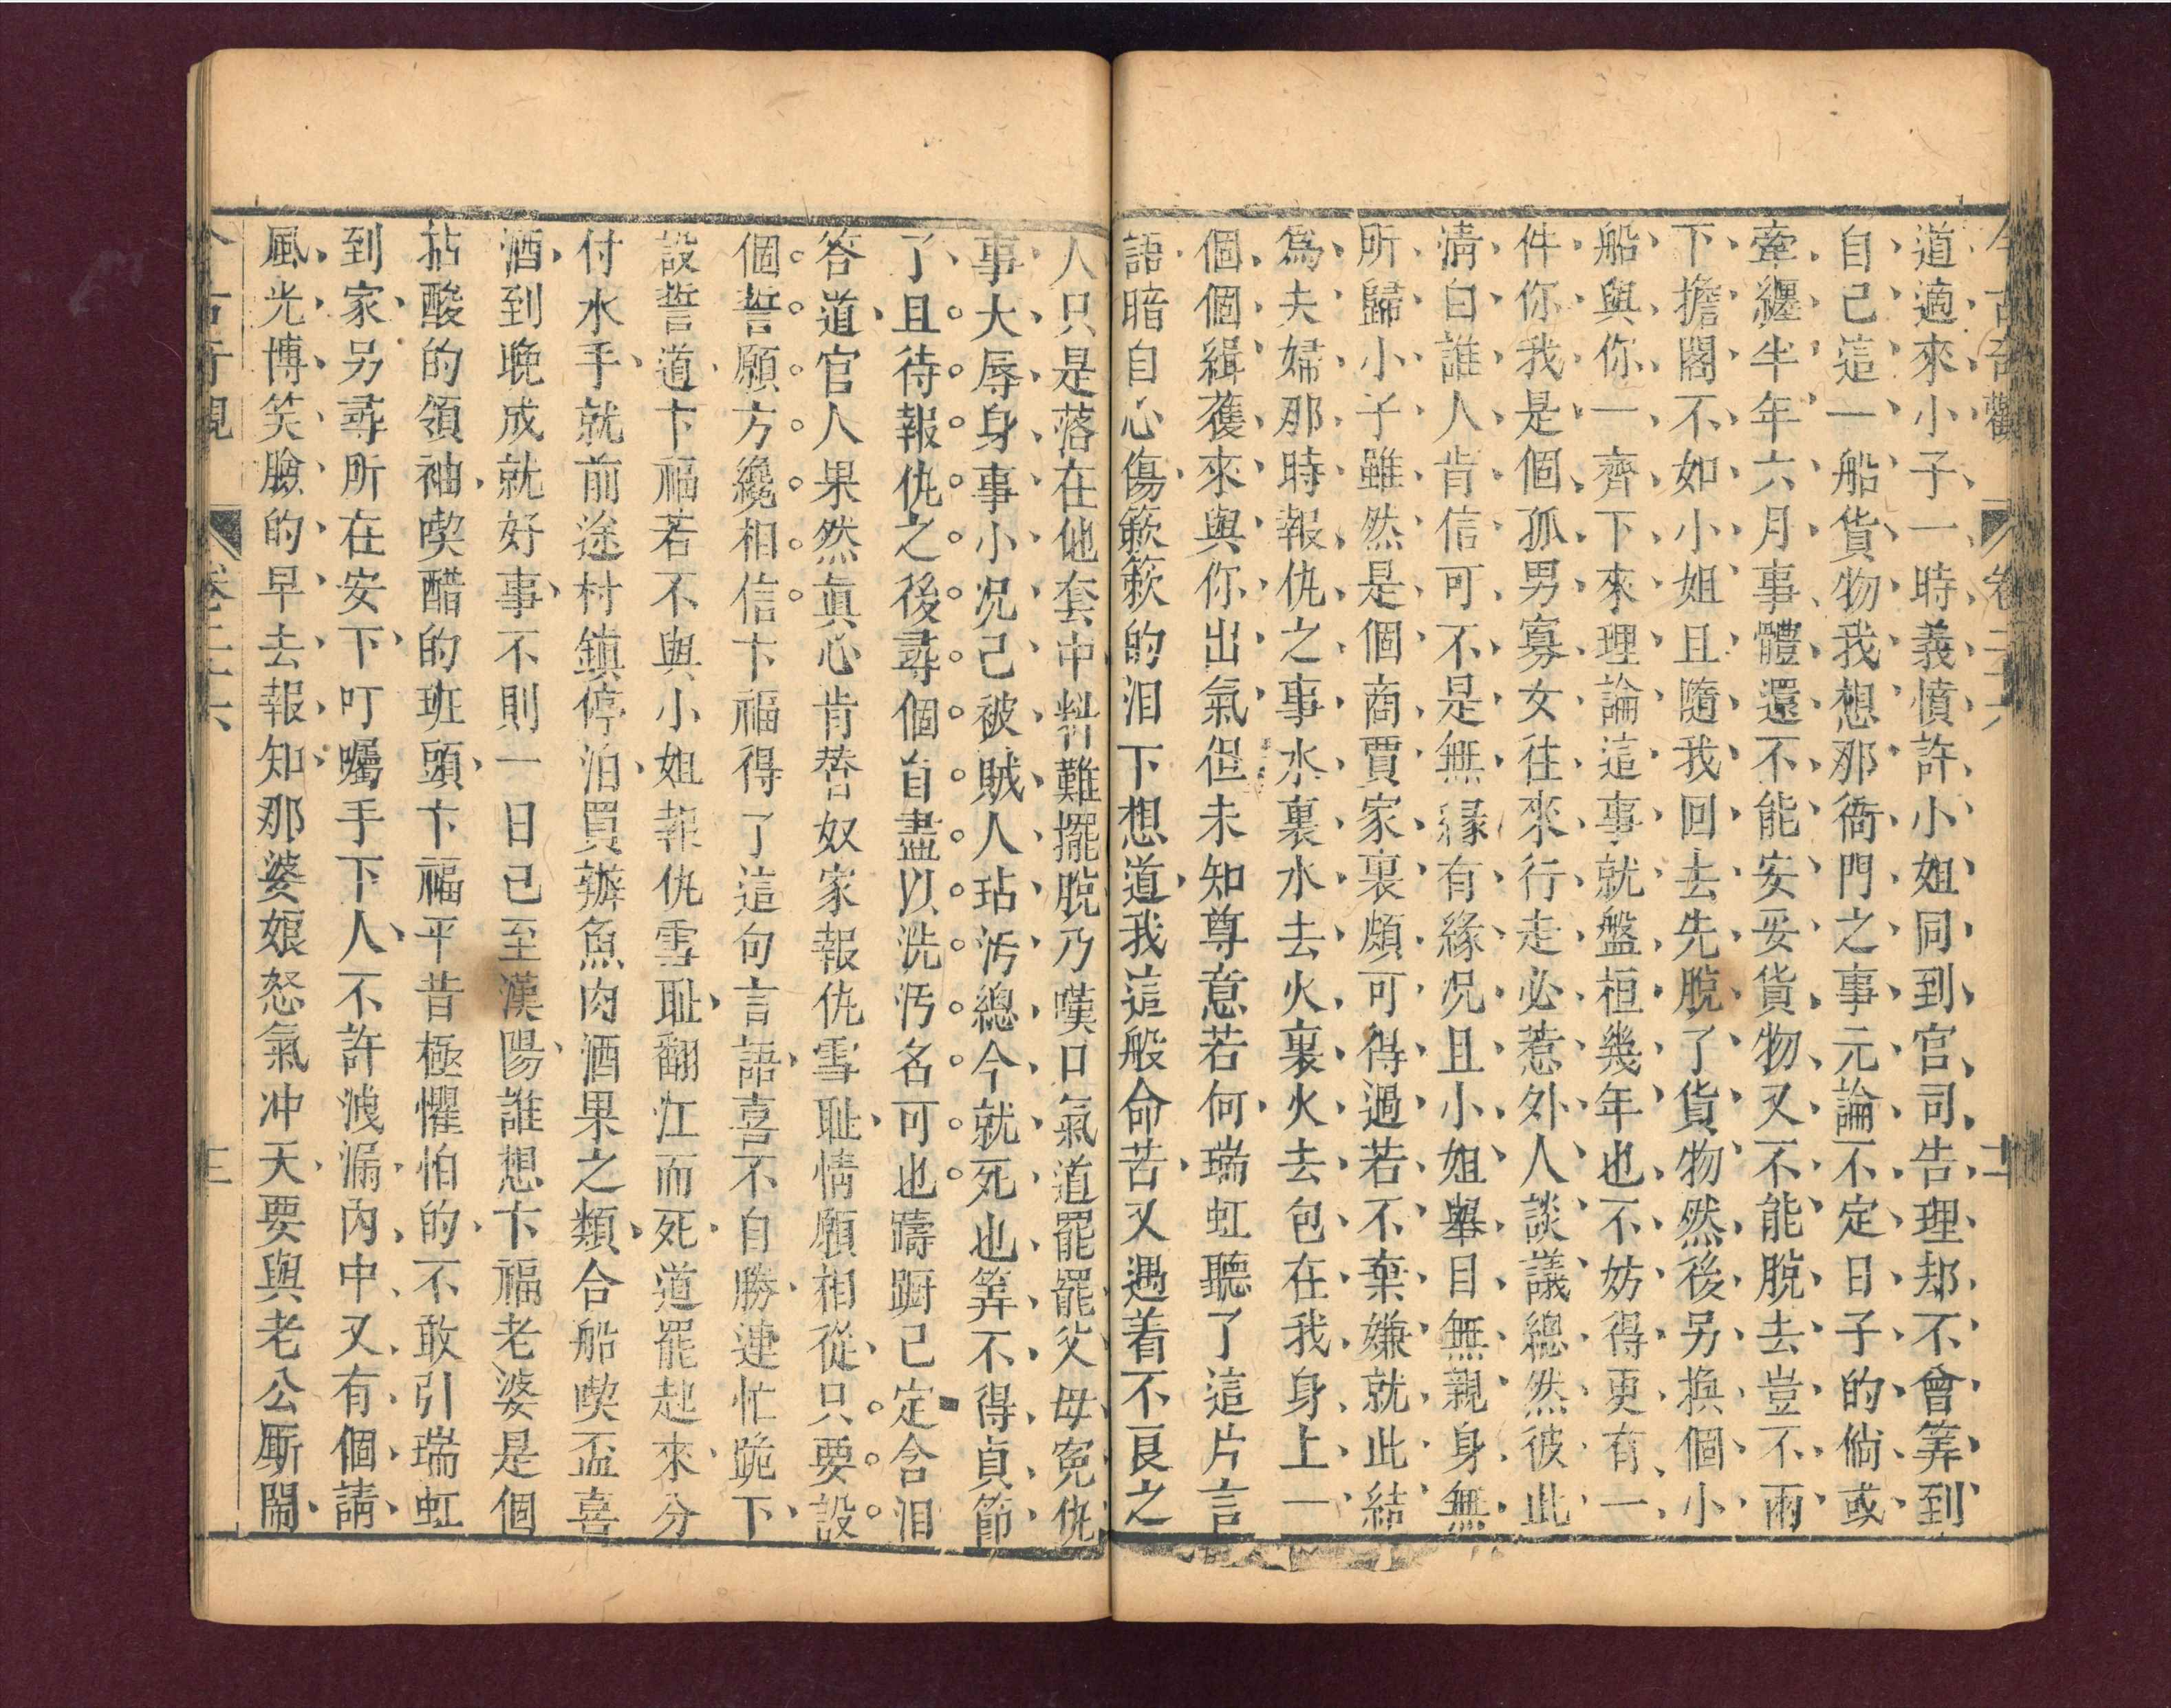 今古奇觀 卷二十六 十二
道適來小子一時義憤許小姐同到官司告理却不曾筭到
自己這一船貨物我想那衙門之事元論不定日子的倘或
牽纏半年六月事體還不能安妥貨物又不能脫去豈不兩
下擔閣不如小姐且隨我回去先脫了貨物然後另換個小
船與你一齊下來理論這事就盤桓幾年也不妨得更有一
件你我是個孤男寡女往來行走必惹外人談議總然彼此
清白誰人肯信可不是無緣有緣况且小姐舉目無親身無
所歸小子雖然是個商賈家裏頗可得過若不棄嫌就此結
爲夫婦那時報仇之事水裏水去火裏火去包在我身上一
個個緝獲來與你出氣但未知尊意若何瑞虹聽了這片言
語暗自心傷簌簌的泪下想道我這般命苦又遇着不良之
人只是落在他套中料難擺脫乃嘆口氣道罷罷父母寃仇
事大辱身事小况已被賊人玷汚總今就死也筭不得貞節
了且待報仇之後尋個自盡以洗汚名可也躊蹰已定含泪
答道官人果然眞心肯替奴家報仇雪耻情願相從只要設
個誓願方纔相信卞福得了這句言語喜不自勝連忙跪下
設誓道卞福若不與小姐報仇雪耻翻江而死道罷起來分
付水手就前途村鎮停泊買辦魚肉酒果之類合船喫盃喜
酒到晚成就好事不則一日已至漢陽誰想卞福老婆是個
拈酸的領袖喫醋的班頭卞福平昔極懼怕的不敢引瑞虹
到家另尋所在安下叮囑手下人不許洩漏內中又有個請
風光博笑臉的早去報知那婆娘怒氣冲天要與老公厮鬧
今古奇觀 卷二十六